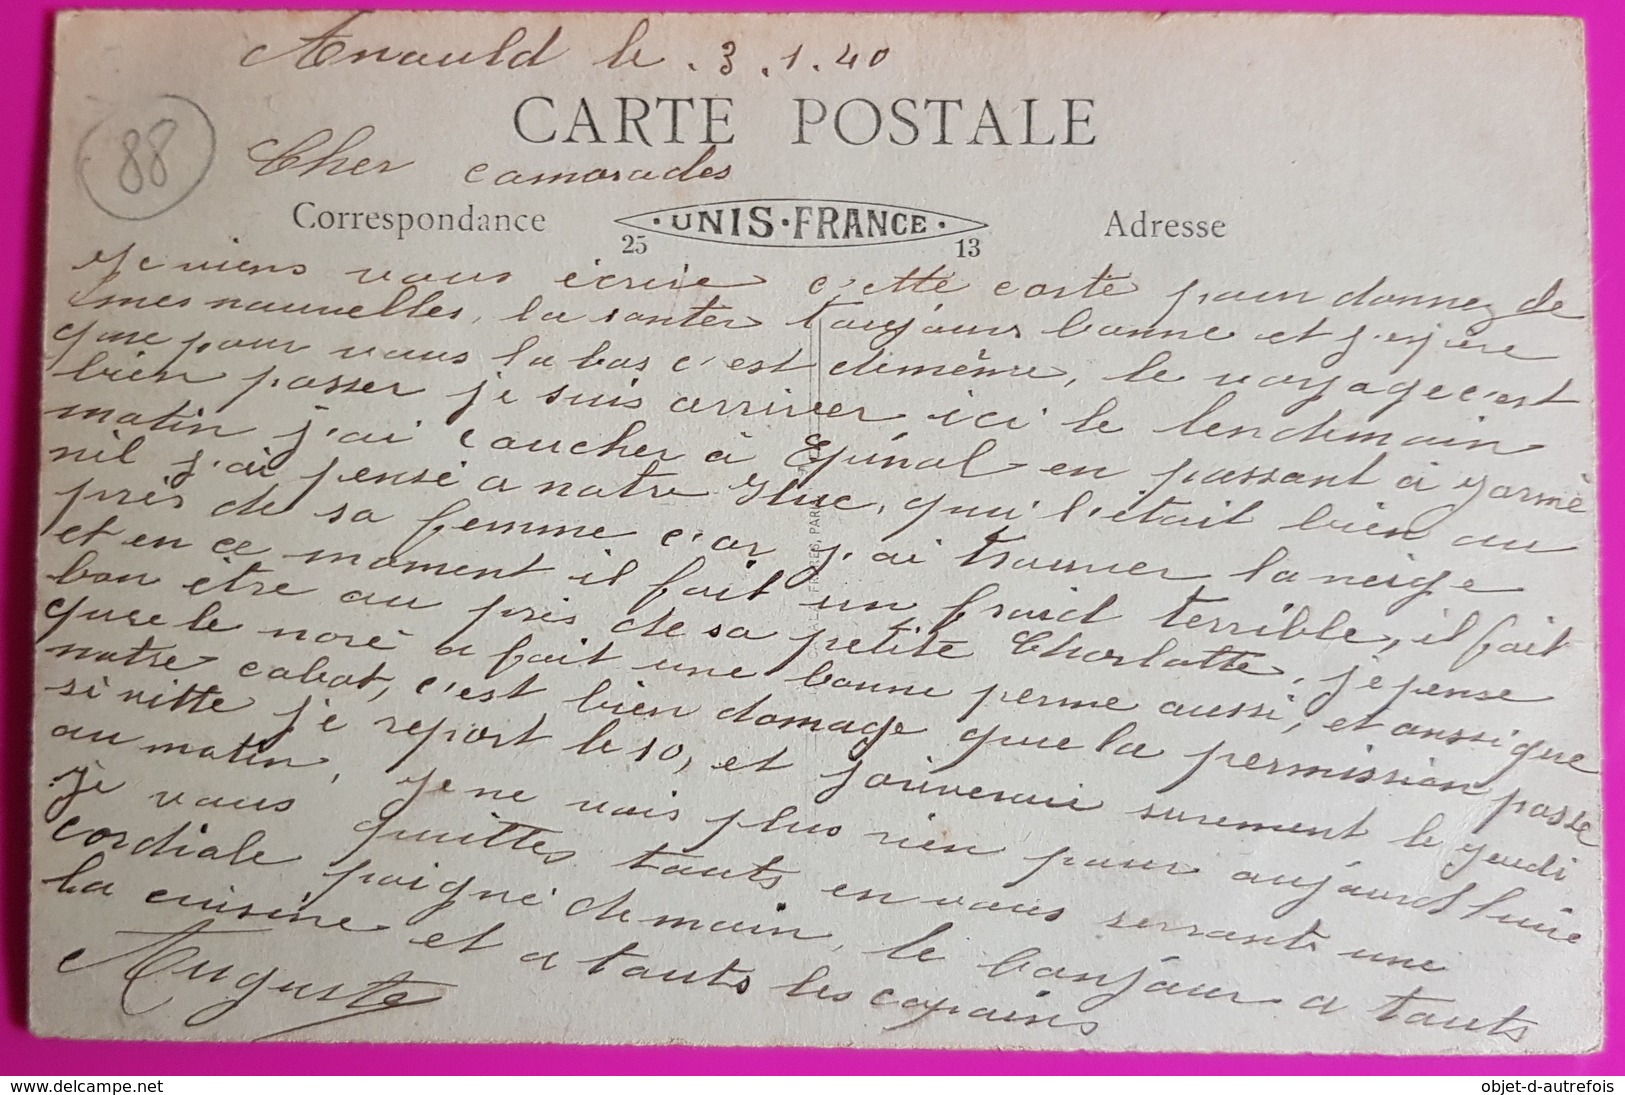 Arnauld le . 3 . 1 . 40
88
CARTE POSTALE
Cher camarades
Correspondance
· UNIS · FRANCE ·
25 13
Adresse
Je viens vous écrire cette carte pour donnez de
mes nouvelles, la santer toujours bonne et j'espère
que pour vous la bas c'est demême, le voyage c'est
bien passer je suis arriver ici le lendemain
matin j'ai coucher à Epinal en passant à Jarmé
nil j'ai pensé a notre Htuc, qui l'était bien au
près de sa femme c'ar j'ai trouver la neige
et en ce moment il fait un fraid terrible, il fait
bon être au près de sa petite Charlotte, je pense
que le noré a fait une bonne perme aussi, et aussi que
notre cabot, c'est bien domage que la permission passe
si vitte je report le 10, et j'ariverai surement le jeudi
au matin, Je ne vois plus rien pour aujourd huie
je vous quittes tauts en vous serrants une
cordiale poigné de main, le bonjour a tauts
la cuisine et a tauts les copains
Auguste
FRÈRES, PAR
delcampe.net
objet-d-autrefois